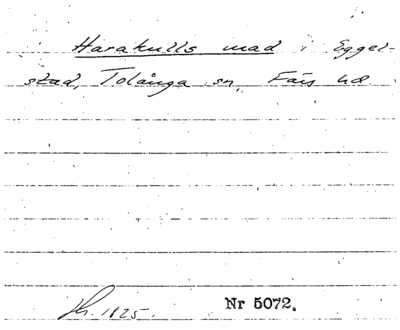 Harakulls mad i Egge-
stad, Tolånga sn, Färs hd
1825.
Nr 5072.